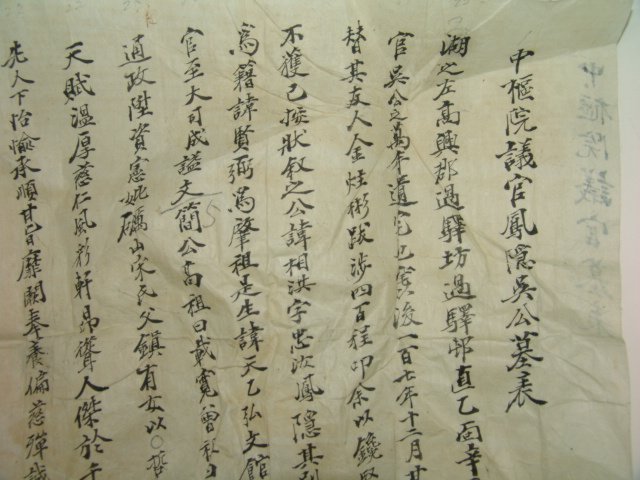 中樞院議官鳳隱吳公墓表
湖之左高興郡過驛坊過驛邨直乙面辛
官吳公之萬年遺宅也實後一百七年十二月甘
替其友人金炷彬跋涉四百程叩余以鑱
不獲已按狀叙之公諱相淇字忠汝鳳隱其別
爲籍諱賢弼爲肇祖是生諱天乙弘文館
官至大司成謚文簡公高祖曰載寬曾祖曰
通政陞資憲妣礪山宋氏父鎮有女以○哲
天賦溫厚慈仁風彩軒昂聳人傑於千
先人下怡愉承順甘旨靡闕奉養偏慈殫誠
中樞院議官